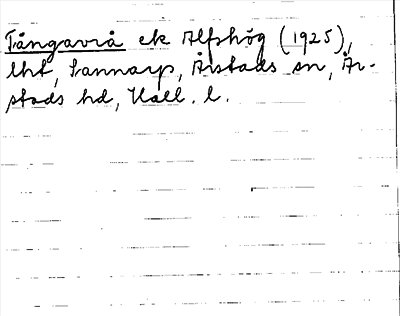 Tångavrå ek Alfshög (1925),
lht, Sannarp, Årstads sn, År-
stads hd, Hall. l.